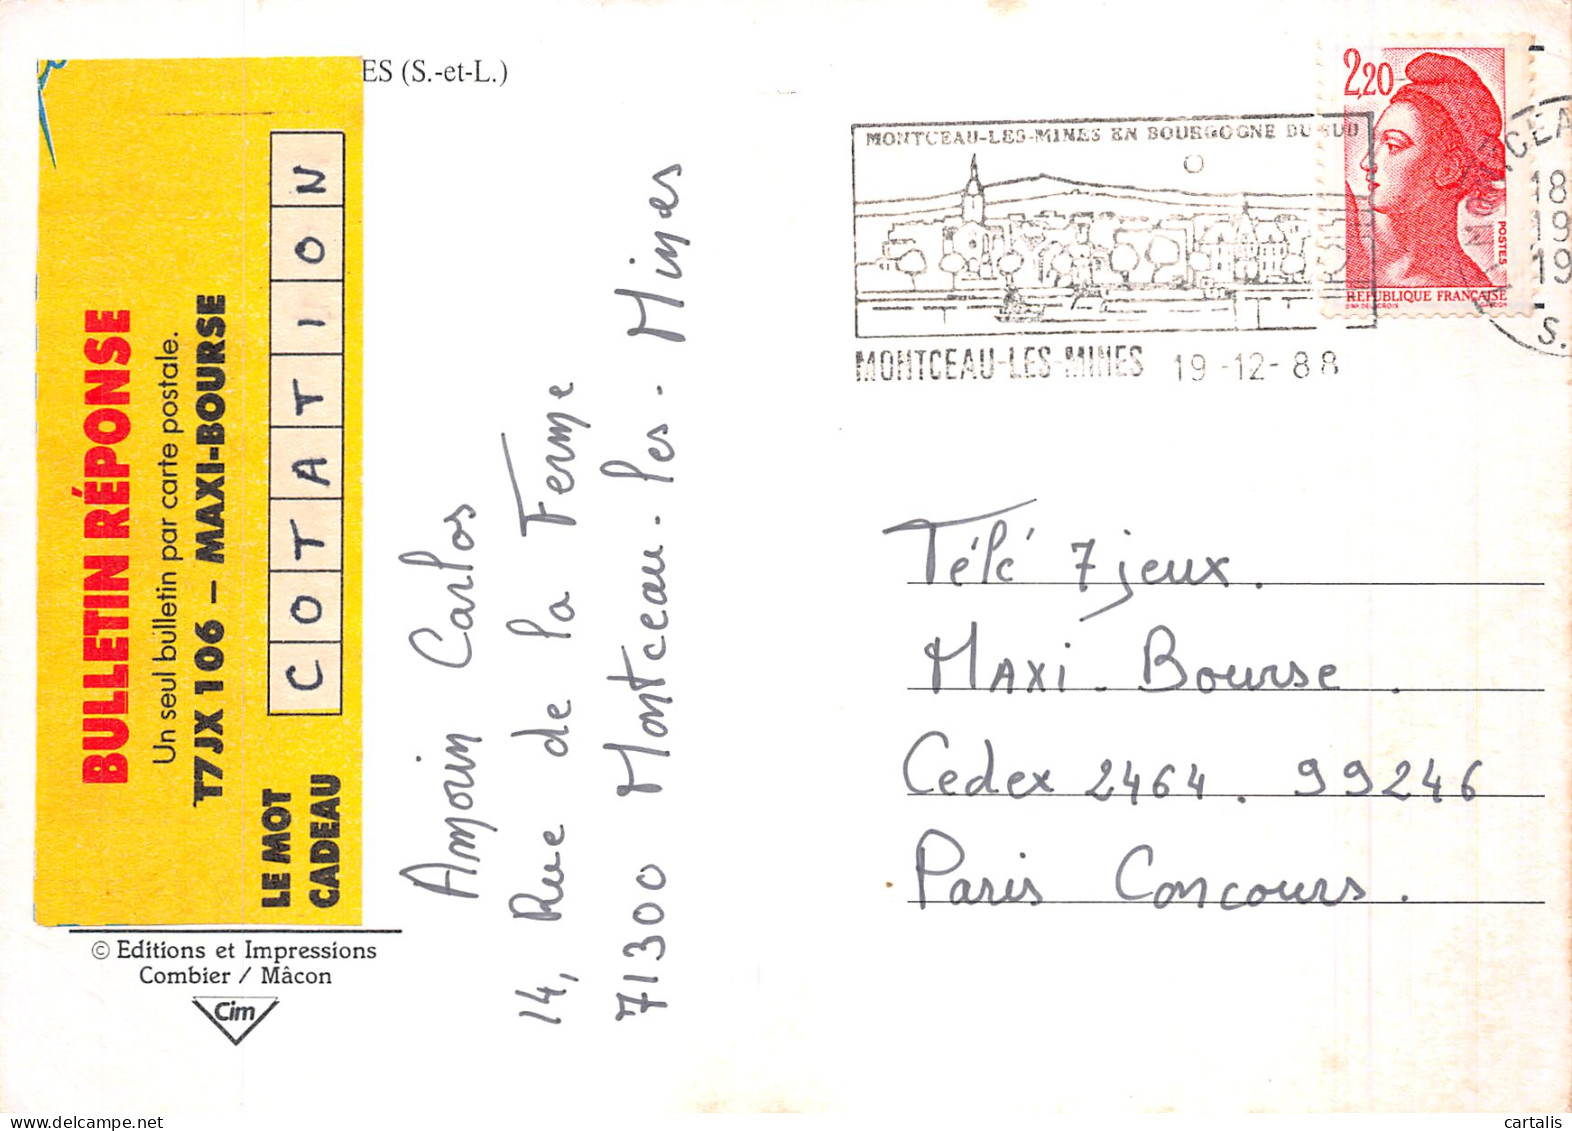 ES (S.-et-L.)
BULLETIN RÉPONSE
Un seul bulletin par carte postale.
T7JX 106 – MAXI-BOURSE
LE MOT
CADEAU
COTATION
© Editions et Impressions
Combier / Mâcon
Cim
Amoin Carlos
14, Rue de la Ferme
71300 Montceau-les-Mines
MONTCEAU-LES-MINES EN BOURGOGNE DU SUD
MONTCEAU-LES-MINES 19-12-88
2,20
POSTES
REPUBLIQUE FRANÇAISE
18
19
19
S.
Télé 7 jeux.
MAXi. Bourse.
Cedex 2464. 99246
Paris Concours.
cartalis